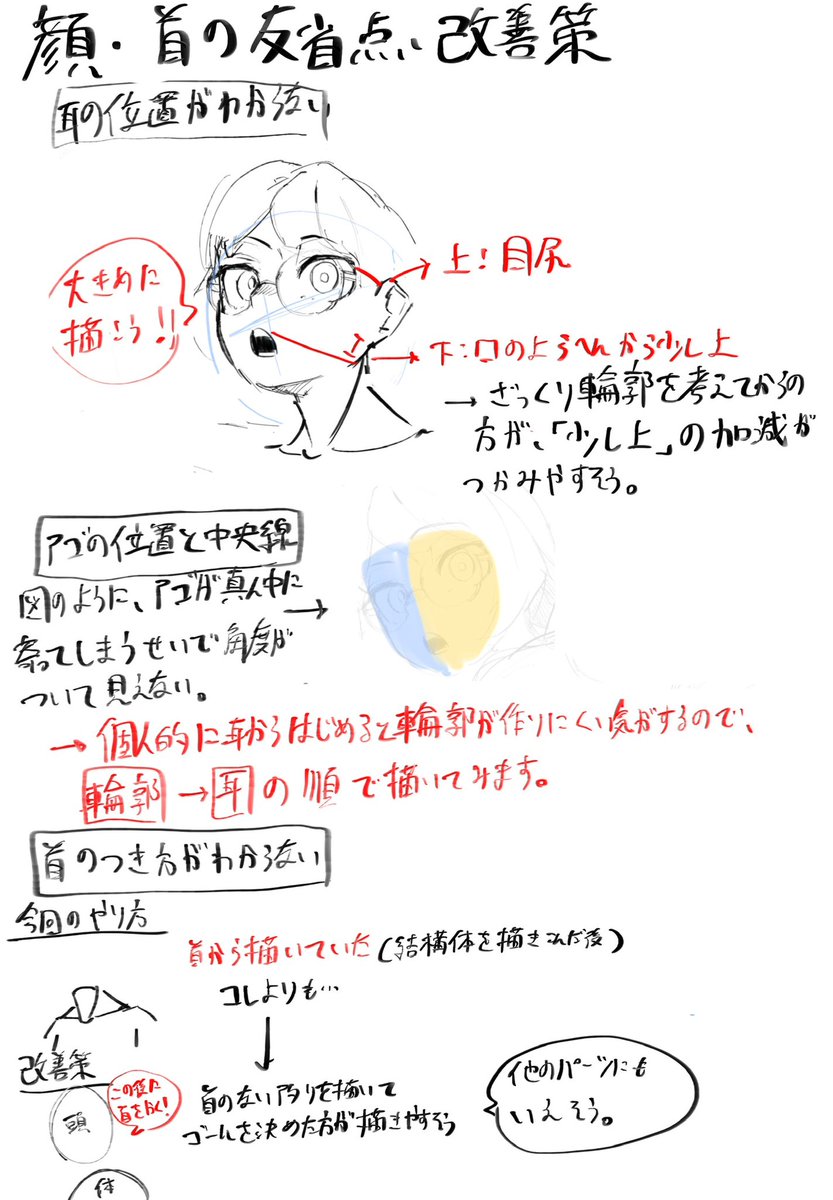 顔・首の反省点、改善策
耳の位置がわからない
大きめに
描こう!!
上!目尻
下:口のようへんから少し上
→ざっくり輪郭を考えてからの
方が、「少し上」の加減が
つかみやすそう。
アゴの位置と中央線
図のように、アゴが真ん中に
寄ってしまうせいで角度が
ついて見えない。
→個人的に耳からはじめると輪郭が作りにくい気がするので、
輪郭→耳の順で描いてみます。
首のつき方がわからない
今回のやり方
首から描いていた(結構体を描きこんだ後)
コレよりも…
改善策
この後に
首を描く!
頭
首のないアタリを描いて
ゴールを決めた方が描きやすそう
他のパーツにも
いえそう。
体